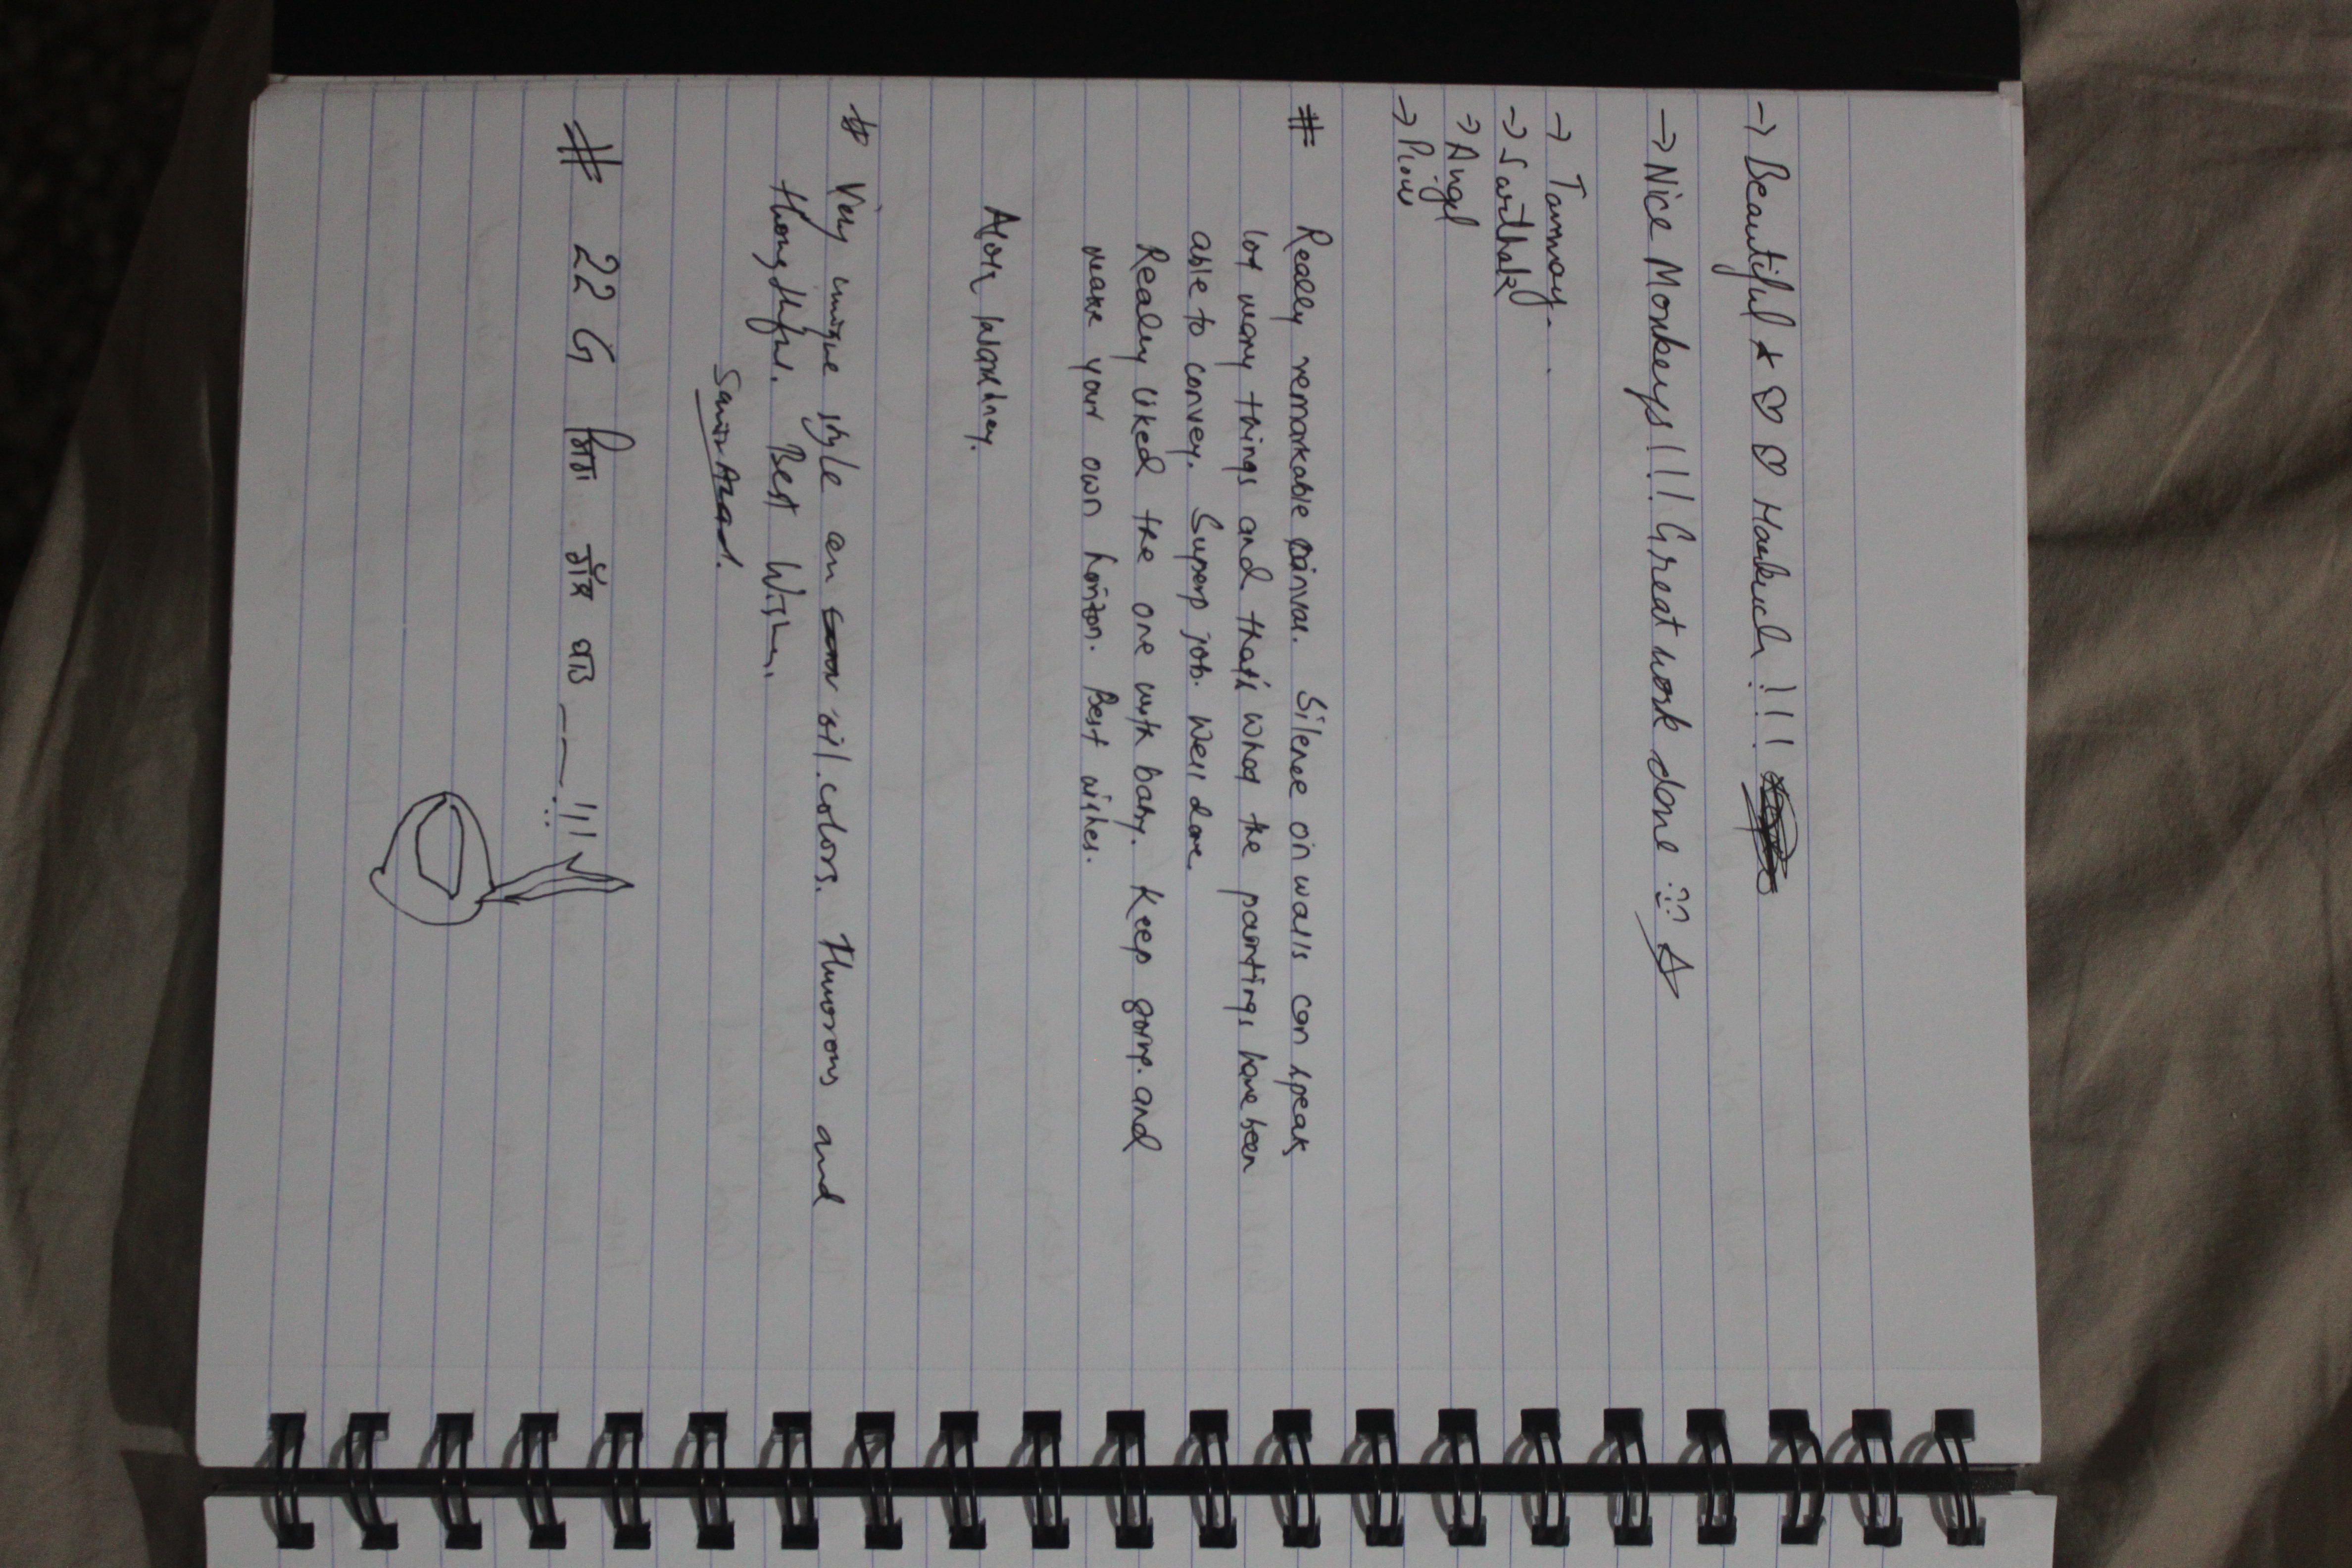 → Beautiful ★ ♡ ♡ !!!
→ Nice Monkeys!!! Great work done :)
→ Tanmay.
→ Sarthak
→ Angel
→ Piou
# Really remarkable canvas. Silence on walls can speak
lot many things and that's what the paintings have been
able to convey. Superp job. Well done.
Really liked the one with baby. Keep going. and
make your own horizon. Best wishes.
Alok Wadkhey.
# Very unique style an oil colors. Humorous and
thoughtful. Best Wishes.
Samir Azad.
# 22 G !!!